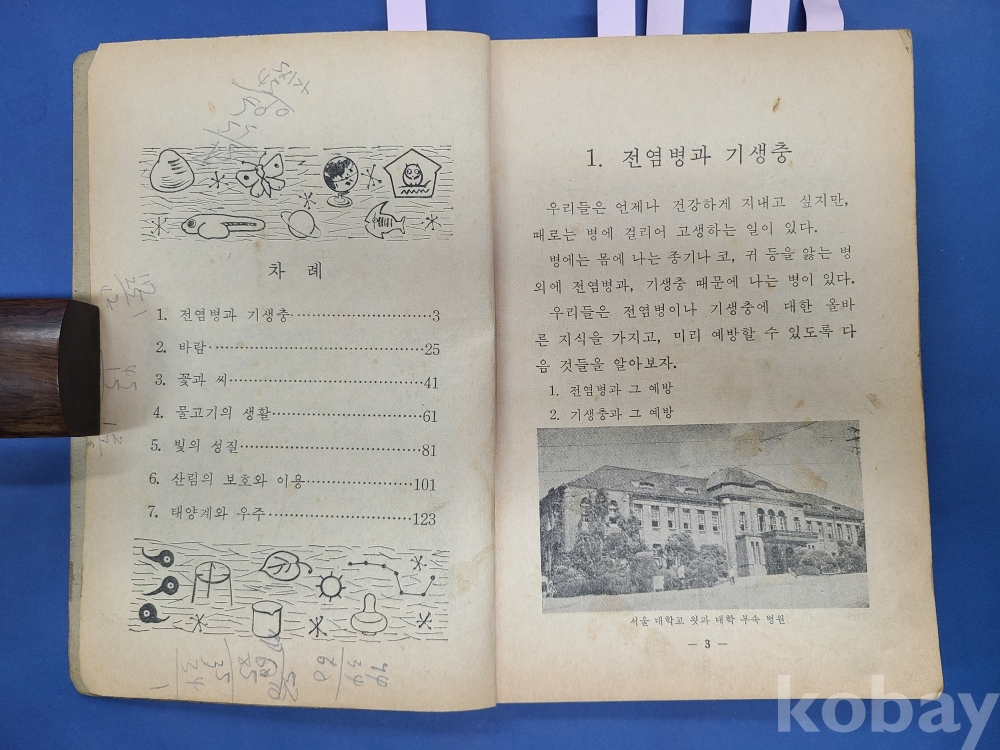 차 례
1. 전염병과 기생충 3
2. 바람 25
3. 꽃과 씨 41
4. 물고기의 생활 61
5. 빛의 성질 81
6. 산림의 보호와 이용 101
7. 태양계와 우주 123
1. 전염병과 기생충
우리들은 언제나 건강하게 지내고 싶지만,
때로는 병에 걸리어 고생하는 일이 있다.
병에는 몸에 나는 종기나 코, 귀 등을 앓는 병
외에 전염병과, 기생충 때문에 나는 병이 있다.
우리들은 전염병이나 기생충에 대한 올바
른 지식을 가지고, 미리 예방할 수 있도록 다
음 것들을 알아보자.
1. 전염병과 그 예방
2. 기생충과 그 예방
서울 대학교 의과 대학 부속 병원
— 3 —
kobay